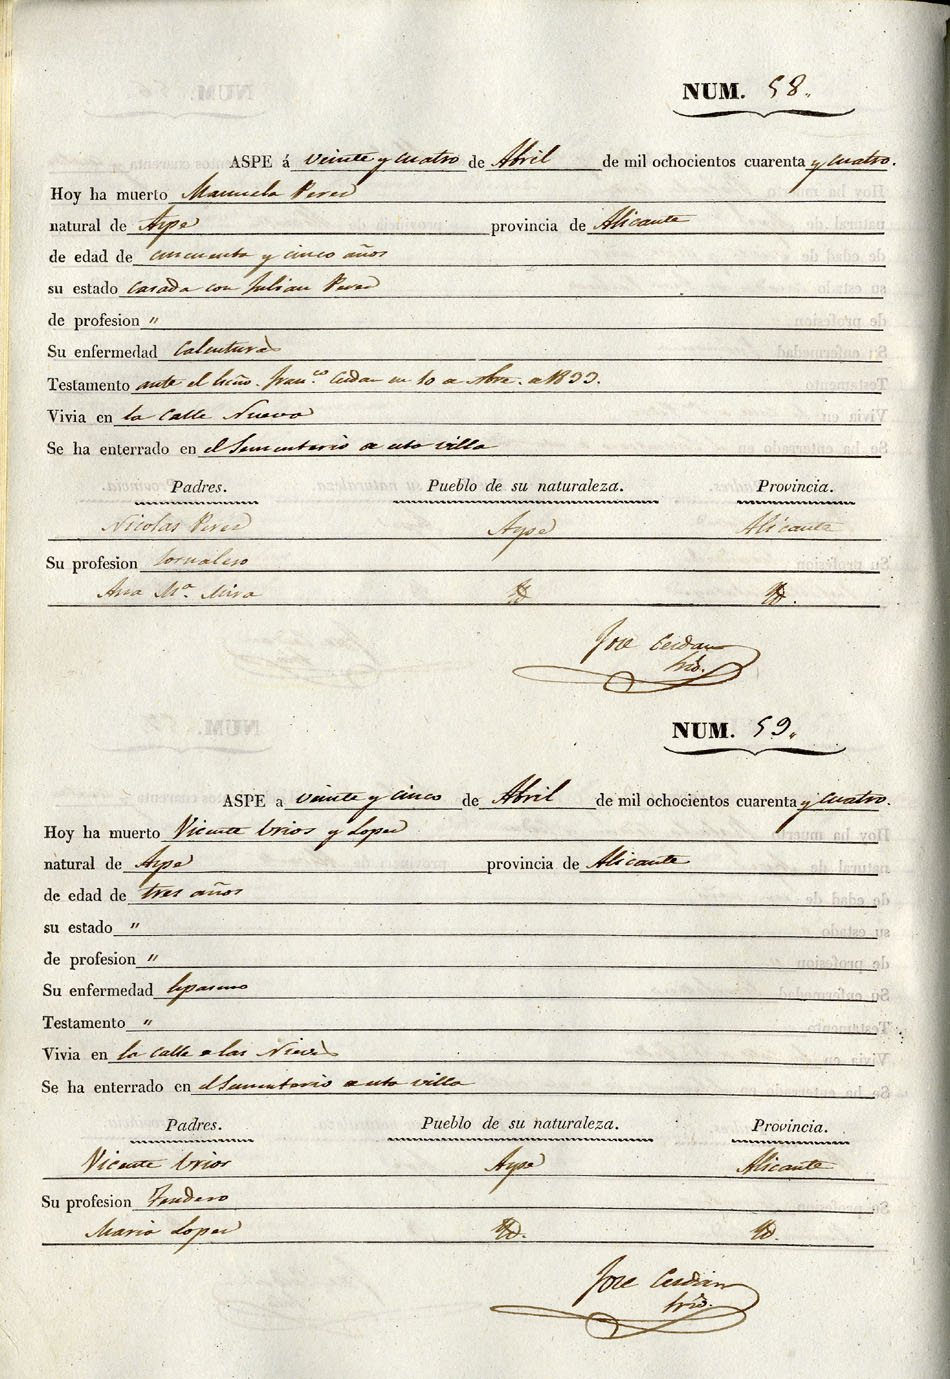 NUM. 58.
ASPE á veinte y cuatro de Abril de mil ochocientos cuarenta y cuatro.
Hoy ha muerto Manuela Perez
natural de Aspe provincia de Alicante
de edad de cincuenta y cinco años
su estado casada con Julian Perez
de profesion "
Su enfermedad Calenturas
Testamento ante el Franco. Cerdan en 10 de de 1833.
Vivia en la Calle Nueva
Se ha enterrado en el Sementerio de esta villa
Padres. Pueblo de su naturaleza. Provincia.
Nicolas Perez Aspe Alicante
Su profesion Jornalero
Ana Ma. Mira Yd Yd.
Jose Cerdan
Srio.
NUM. 59.
ASPE a veinte y cinco de Abril de mil ochocientos cuarenta y cuatro.
Hoy ha muerto Vicente Urios y Lopez
natural de Aspe provincia de Alicante
de edad de tres años
su estado "
de profesion "
Su enfermedad
Testamento "
Vivia en la Calle de las Nieves
Se ha enterrado en el Sementerio de esta villa
Padres. Pueblo de su naturaleza. Provincia.
Vicente Urios Aspe Alicante
Su profesion Tendero
Maria Lopez Yd. Yd.
Jose Cerdan
Srio.